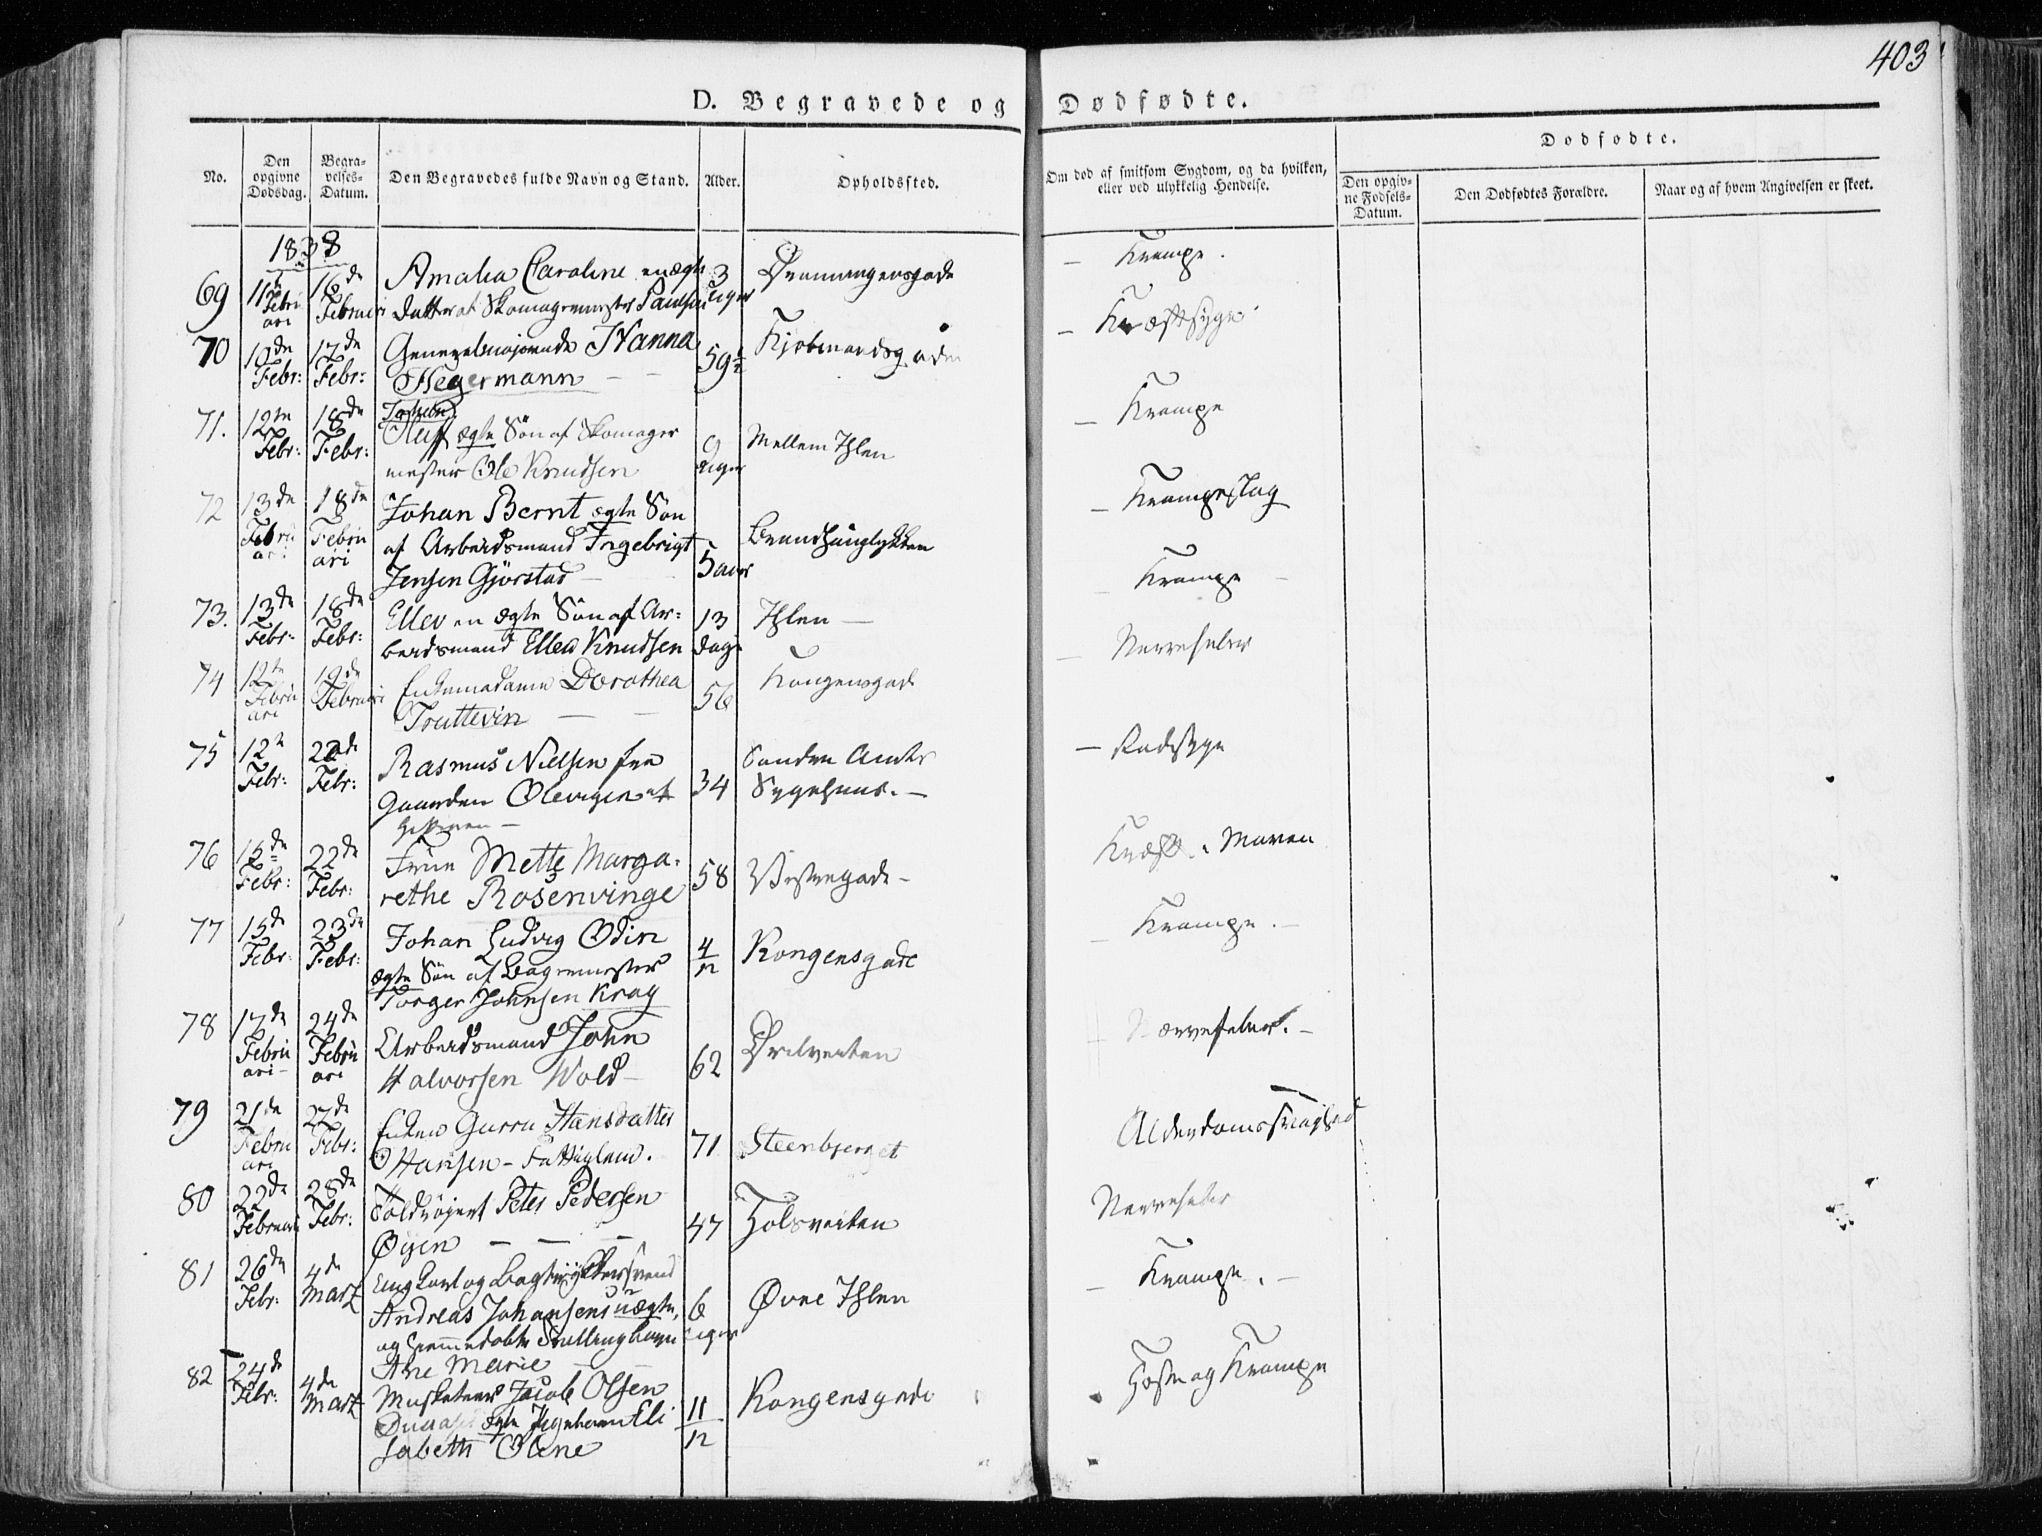 403
D. Begravede og Dødfødte.
No.
Den opgivne Dødsdag.
Begravelses-Datum.
Den Begravedes fulde Navn og Stand.
Alder.
Opholdssted.
Om død af smitsom Sygdom, og da hvilken, eller ved ulykkelig Hendelse.
Dødfødte.
Den opgivne Fødsels-Datum.
Den Dødfødtes Forældre.
Naar og af hvem Angivelsen er skeet.
1838
69 11te Februari 16de Februari Amalia Caroline en ægte 3 — Krampe.
Datter af Skomagermester Uger
70 10de Febr: 17de Febr: Generalmajorinde Hanna 59½ Kjøbmandsgaden — Kræftsyge
Hegermann
71. 12te Febr: 18de Febr: Johan
Oluf ægte Søn af Skomager 9 Uger Mellem Ihlen — Krampe
mester Ole Knudsen
72 13de Februari 18de Februari Johan Bernt ægte Søn — Krampeslag
af Arbeidsmand Ingebrigt 5 aar
Jensen Gjørstad
73. 13de Febr: 18de Febr: Ellev en ægte Søn af Ar= 13 Dage Ihlen — Krampe
beidsmand Ellev Knudsen
74 12te Februari 19de Februari Enkemadame Dorothea 56 Kongensgade — Nervefeber
Truttevin
75 12te Febr: 22de Febr: Rasmus Nielsen fra 34 Søndre Amts — Radesyge
Gaarden Sygehuus.
76 15de Febr: 22de Febr: Frue Mette Marga= 58 Kræft i Maven
rethe Rosenvinge
77 15de Febr: 23de Febr: Johan Ludvig Odin 4/12 Kongensgade — Krampe.
ægte Søn af Bagermester
Torger Johnsen Krag
78 17de Februari 24de Februari Arbeidsmand John 62 — Nervefeber.
Halvorsen Wold
79 21de Februari 27de Febr: Enken Gurru Hansdatter 71 Steenbjerget Alderdomssvaghed
Hansen – Fattiglem.
80 22de Februari 28de Febr: Peter Pedersen 47 Nervefeber
Øyen
81 26de Febr: 4de Martz 6 Uger Øvre Ihlen — Krampe.
Andreas Johansens uægte,
og hjemmedøbte Tvillingbarn
Ane Marie
82 24de Febr: 4de Martz Musketeer Jacob Olsen 11/12 Kongensgade Hoste og Krampe
ægte Pigebarn Eli
sabeth Olene